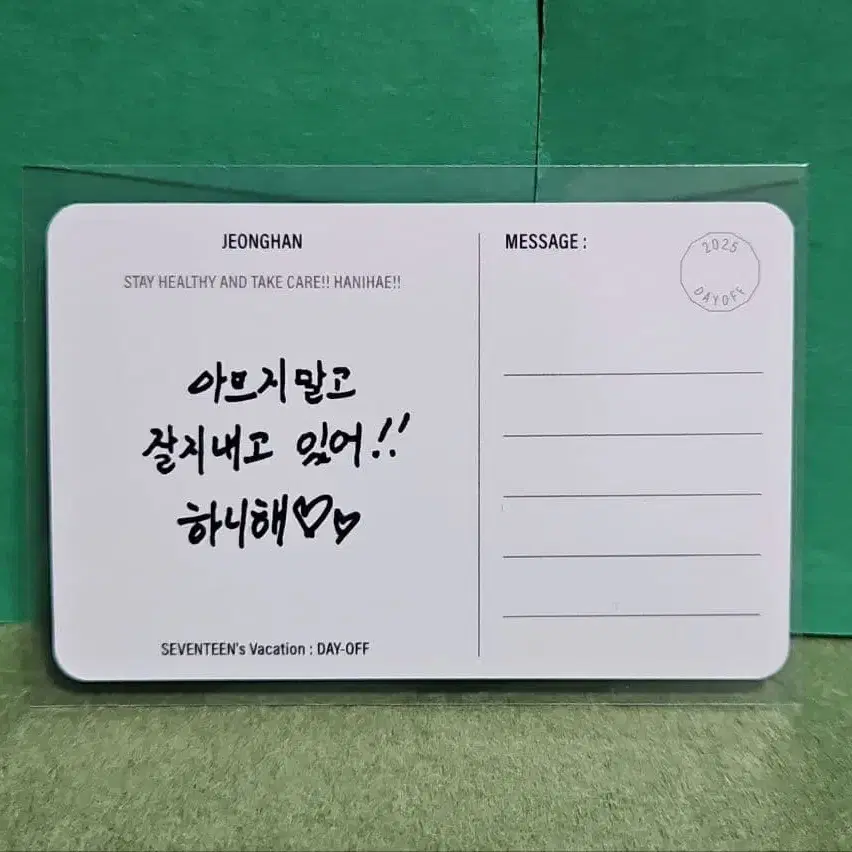 JEONGHAN
STAY HEALTHY AND TAKE CARE!! HANIHAE!!
아프지말고
잘지내고 있어!!
하니해♡♡
SEVENTEEN's Vacation : DAY-OFF
MESSAGE :
2025
DAYOFF